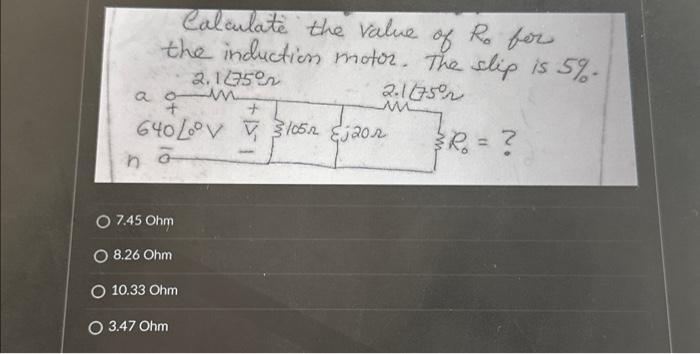 Calculate the value of R₀ for
the induction motor. The slip is 5%.
2.1∠75°Ω 2.1∠75°Ω
a
+ +
640∠0°V V̅₁ 105Ω j20Ω R₀ = ?
- -
n
7.45 Ohm
8.26 Ohm
10.33 Ohm
3.47 Ohm